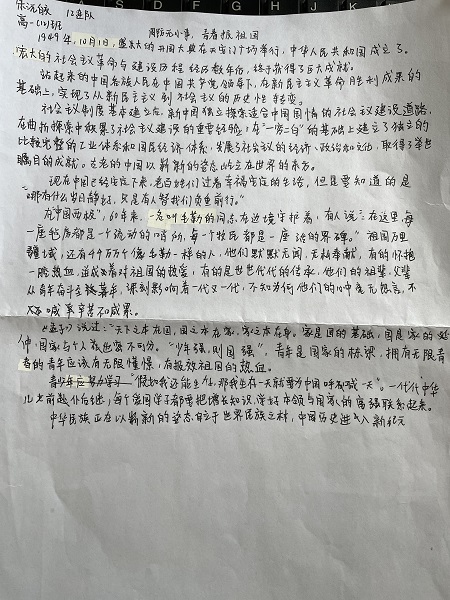 12连队
高一(12)班
国防无小事，青春报祖国
1949年，10月1日，盛大的开国大典在天安门广场举行，中华人民共和国成立了。
宏大的社会主义革命与建设历程经历数年后，终于获得了巨大成就。
站起来的中国各族人民在中国共产党领导下，在新民主主义革命胜利成果的
基础上，实现了从新民主主义到社会主义的历史性转变。
社会主义制度基本建立后，新中国独立探索适合中国国情的社会主义建设道路，
在曲折探索中积累了社会主义建设的重要经验；在"一穷二白"的基础上建立了独立的
比较完整的工业体系和国民经济体系，发展社会主义的经济、政治和文化，取得了举世
瞩目的成就。古老的中国以崭新的姿态屹立在世界的东方。
现在中国已经安定下来，老百姓们过着幸福安定的生活，但是要知道的是
"哪有什么岁月静好，只是有人替我们负重前行。"
在"中国西极"，60年来，一名叫毛勒的同志在边境守护着，有人说：在这里，每
一座毡房都是一个流动的哨所，每一个牧民都是一座活的界碑。"祖国万里
疆域，还有49万个像毛勒一样的人，他们默默无闻，无私奉献，有的怀揣
一腔热血，道或着对祖国的热爱，有的是世世代代的传承，他们的祖辈、父辈
从青年奋斗至，深刻影响着一代又一代，不知为何他们的心中毫无怨言，不
喊辛苦不喊累。
《孟子》说过："天下之本在国，国之本在家，家之本在身。家是国的基础，国是家的延
伸，国家与个人前途密不可分。"少年强，则国强"，青年是国家的栋梁，拥有无限青
春的青年应该有无限憧憬，有报效祖国的热血。
"假如我还能生存，那我生存一天就要为中国呼喊一天"。一代代中华
儿女前赴后继，每个爱国学子都要把增长知识，学好本领与国家的富强联系起来。
中华民族正在以崭新的姿态自立于世界民族之林，中国历史进入新纪元